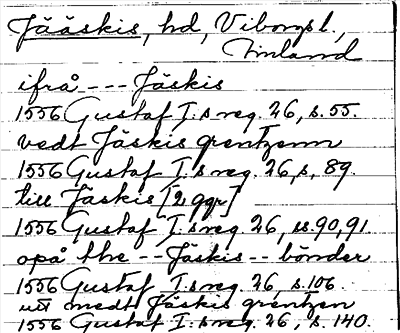 Jääskis, hd, Viborgsl.,
Finland
ifrå --- Jäskis
1556 Gustaf I:s reg. 26, s. 55.
vedt Jäskis grentzenn
1556 Gustaf I:s reg. 26, s. 89.
till Jäskis [2 ggr]
1556 Gustaf I:s reg. 26, ss. 90, 91.
opå the -- Jäskis -- bönder
1556 Gustaf I:s reg. 26, s. 106.
medt Jäskis grentzen
1556 Gustaf I:s reg. 26, s. 140.